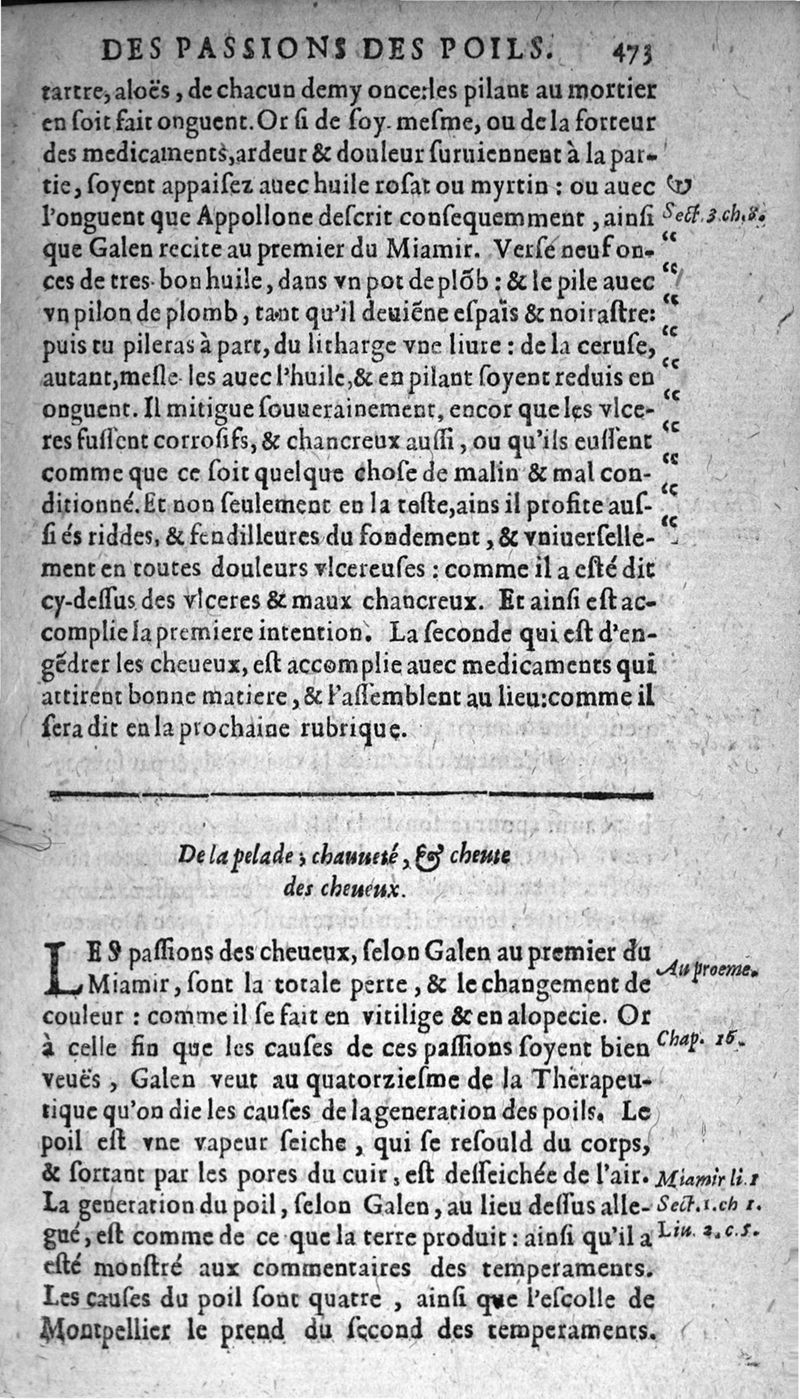 DES PASSIONS DES POILS. 473
tartre, aloës, de chacun demy once: les pilant au mortier
en soit fait onguent. Or si de soy-mesme, ou de la forteur
des medicaments, ardeur & douleur suruiennent à la par-
tie, soyent appaisez auec huile rosat ou myrtin : ou auec
l'onguent que Appollone descrit consequemment, ainsi
Sect. 3. ch. 8.
que Galen recite au premier du Miamir. Versé neuf on-
ces de tres-bon huile, dans vn pot de plõb : & le pile auec
vn pilon de plomb, tant qu'il deuiẽne espais & noirastre:
puis tu pileras à part, du litharge vne liure : de la ceruse,
autant, mesle-les auec l'huile, & en pilant soyent reduis en
onguent. Il mitigue souuerainement, encor que les vlce-
res fussent corrosifs, & chancreux aussi, ou qu'ils eussent
comme que ce soit quelque chose de malin & mal con-
ditionné. Et non seulement en la teste, ains il profite aus-
si és riddes, & fendilleures du fondement, & vniuerselle-
ment en toutes douleurs vlcereuses : comme il a esté dit
cy-dessus des vlceres & maux chancreux. Et ainsi est ac-
complie la premiere intention. La seconde qui est d'en-
gẽdrer les cheueux, est accomplie auec medicaments qui
attirent bonne matiere, & l'assemblent au lieu: comme il
sera dit en la prochaine rubrique.
De la pelade, chauueté, & cheute
des cheueux.
LES passions des cheueux, selon Galen au premier du
Miamir, sont la totale perte, & le changement de
Au proeme.
couleur : comme il se fait en vitilige & en alopecie. Or
à celle fin que les causes de ces passions soyent bien
Chap. 16.
veuës, Galen veut au quatorziesme de la Therapeu-
tique qu'on die les causes de la generation des poils. Le
poil est vne vapeur seiche, qui se resould du corps,
& sortant par les pores du cuir, est desseichée de l'air.
Miamir li. 1
La generation du poil, selon Galen, au lieu dessus alle-
Sect. 1. ch 1.
gué, est comme de ce que la terre produit : ainsi qu'il a
Liu. 2. c. 5.
esté monstré aux commentaires des temperaments.
Les causes du poil sont quatre, ainsi que l'escolle de
Montpellier le prend du second des temperaments.